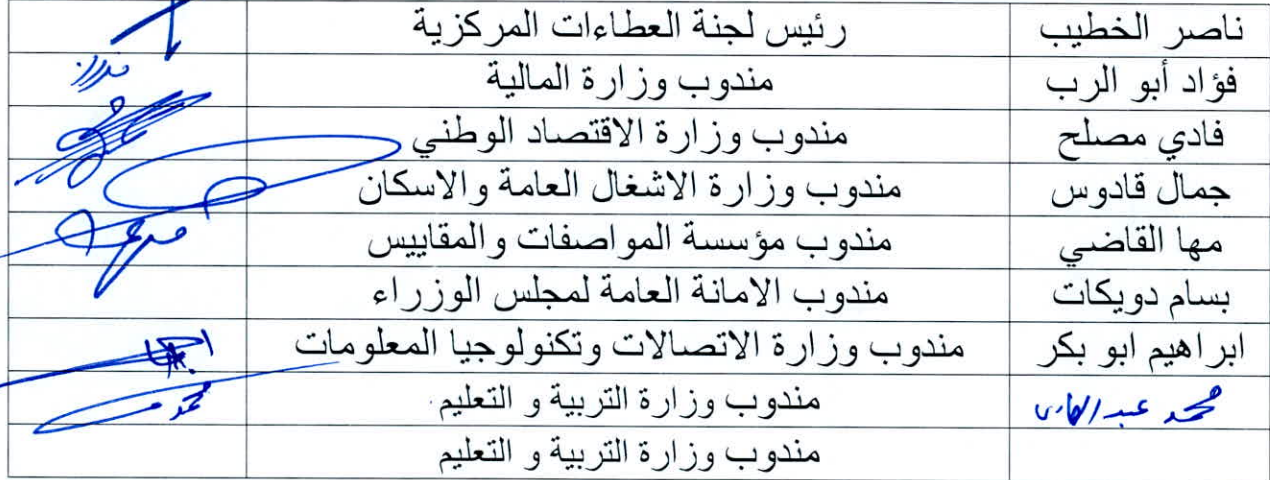 ناصر الخطيب رئيس لجنة العطاءات المركزية
فؤاد أبو الرب مندوب وزارة المالية
فادي مصلح مندوب وزارة الاقتصاد الوطني
جمال قادوس مندوب وزارة الاشغال العامة والاسكان
مها القاضي مندوب مؤسسة المواصفات والمقاييس
بسام دويكات مندوب الامانة العامة لمجلس الوزراء
ابراهيم ابو بكر مندوب وزارة الاتصالات وتكنولوجيا المعلومات
محمد عبد مندوب وزارة التربية و التعليم
مندوب وزارة التربية و التعليم